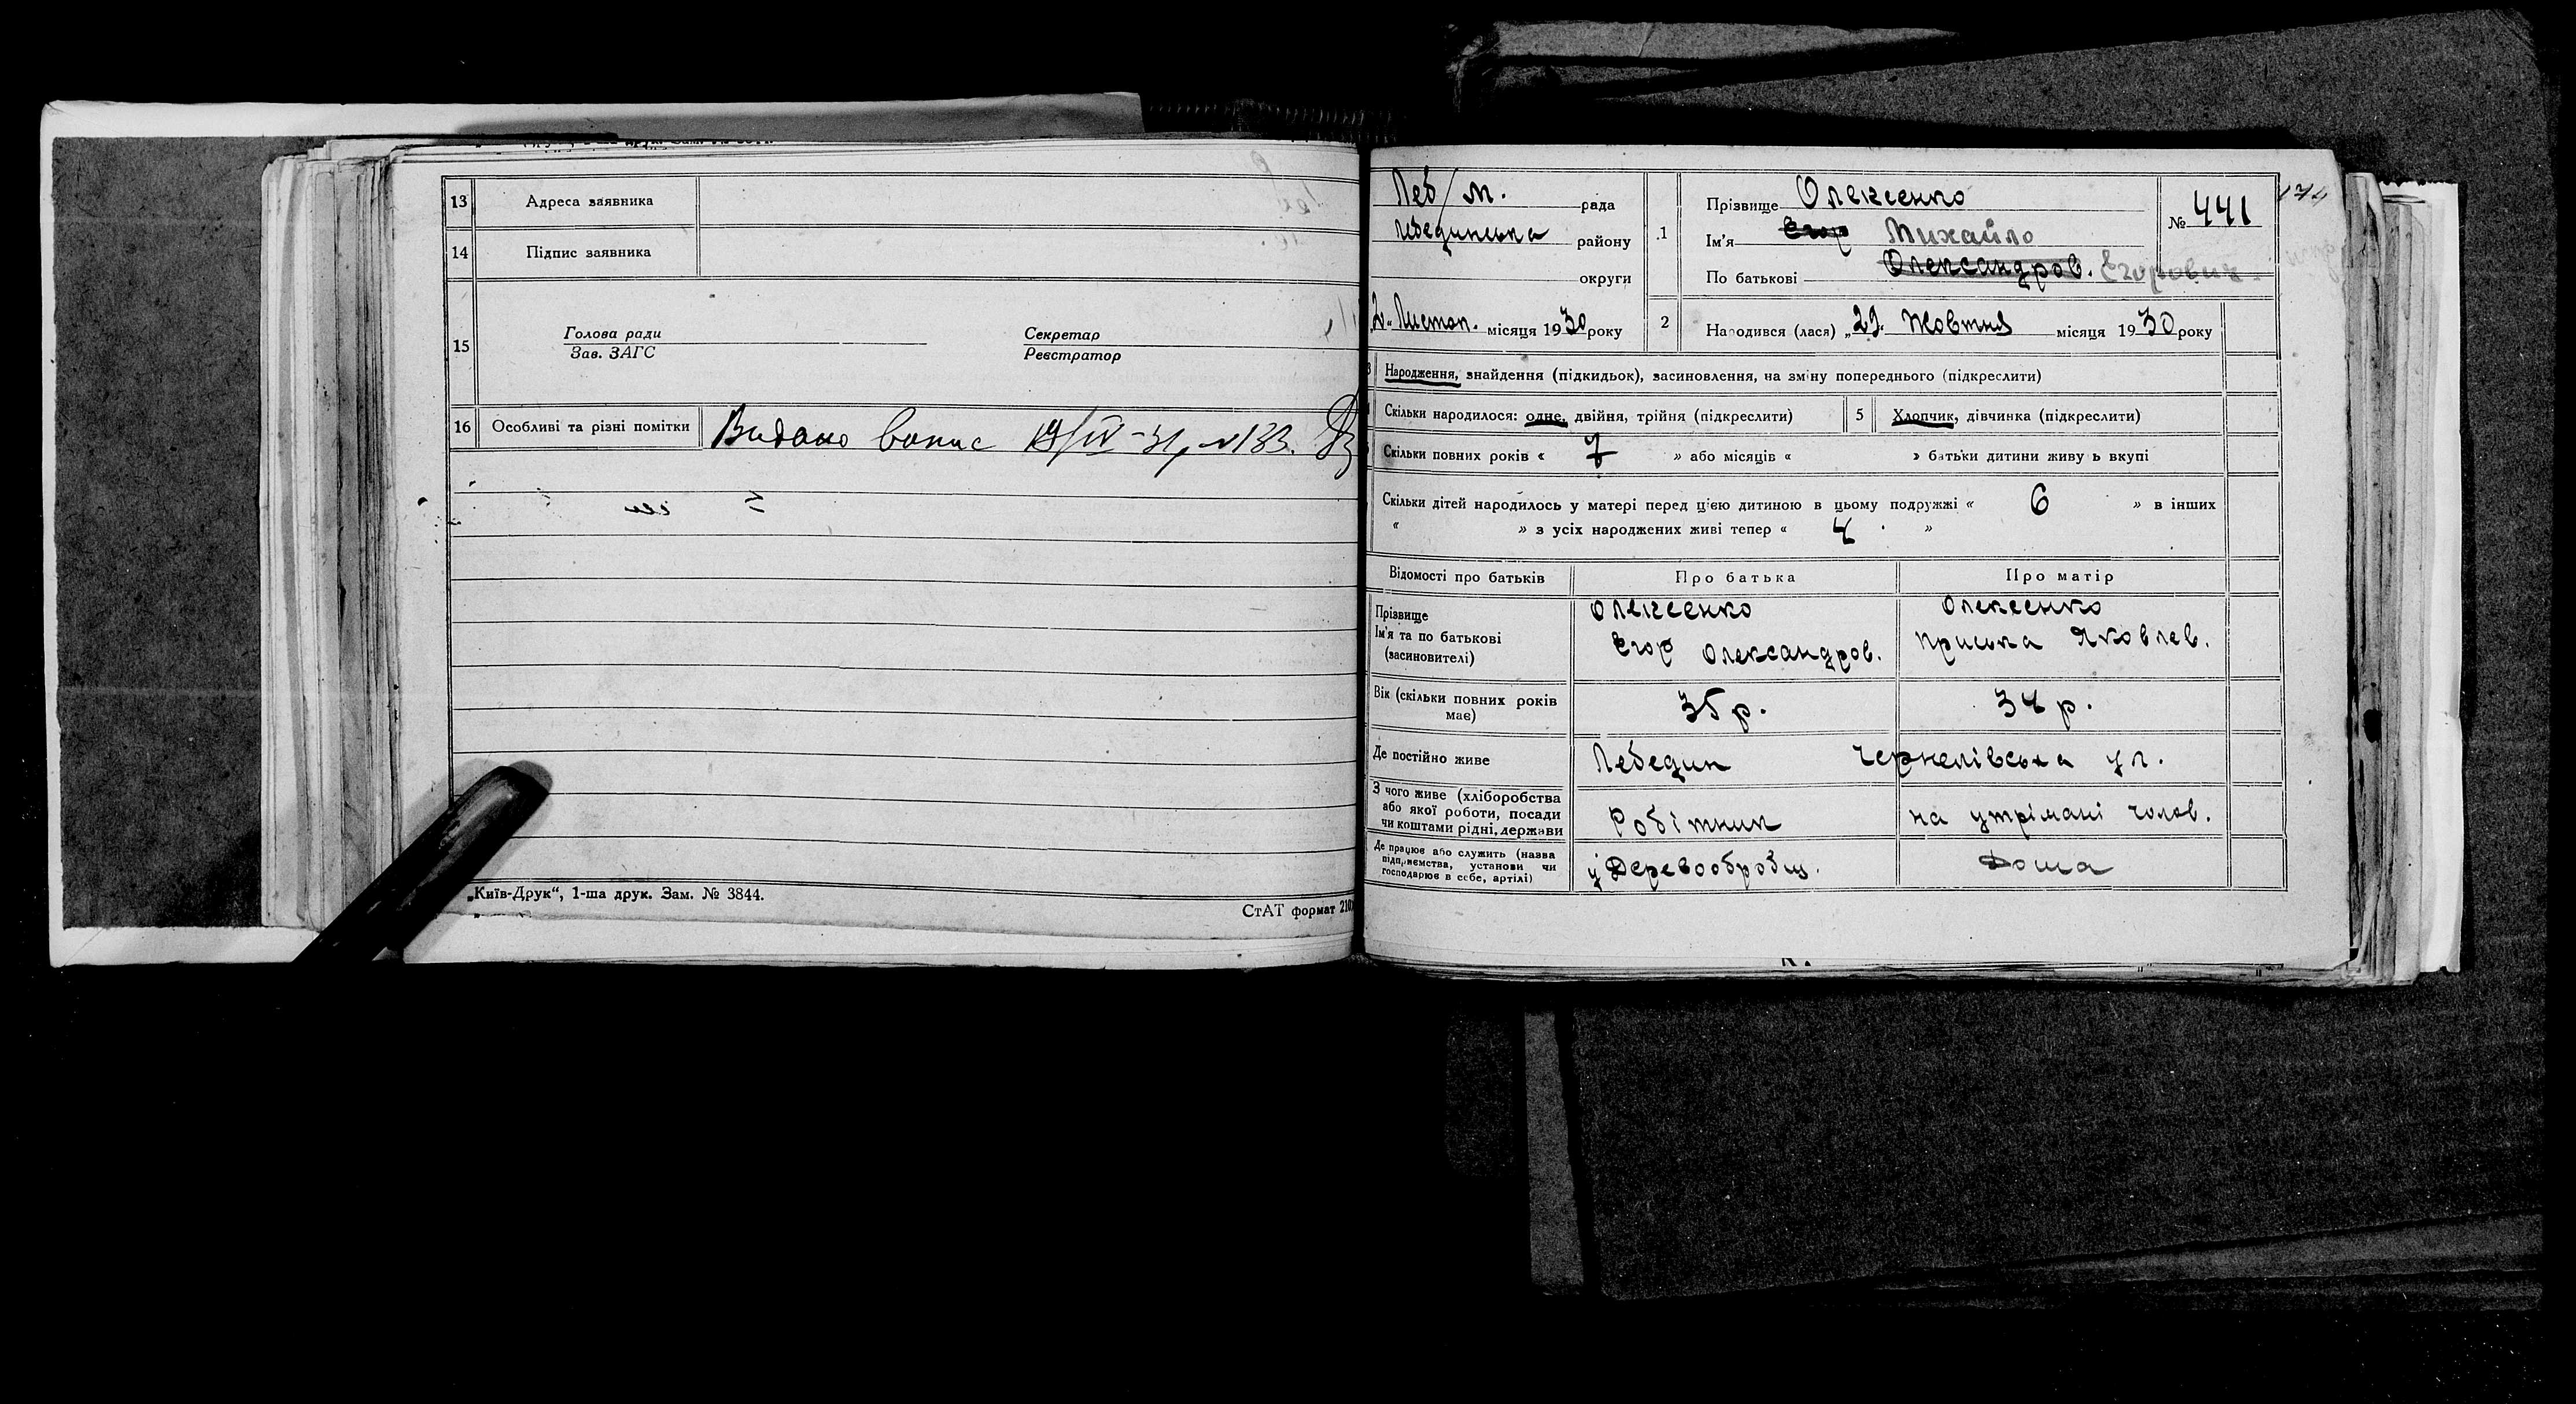 13 Адреса заявника
14 Підпис заявника
15 Голова ради Секретар
Зав. ЗАГС Реєстратор
16 Особливі та різні помітки Видано випис 19/IV-31р №133.
„Київ-Друк“, 1-ша друк. Зам. № 3844.
СтАТ формат 210
Леб/м. рада
Лебединська району
округи
2 „Листоп. місяця 1930 року
174
1 Прізвище Олексенко
№ 441
Ім'я Егор Михайло
По батькові Олександров. Егорович
2 Народився (лася) „29. Жовтня місяця 1930 року
3 Народження, знайдення (підкидьок), засиновлення, на зміну попереднього (підкреслити)
Скільки народилося: одне, двійня, трійня (підкреслити) 5 Хлопчик, дівчинка (підкреслити)
Скільки повних років « 7 » або місяців « » батьки дитини живу ь вкупі
Скільки дітей народилось у матері перед цією дитиною в цьому подружжі « 6 » в інших
« » з усіх народжених живі тепер « 4 »
Відомості про батьків Про батька Про матір
Прізвище Олексенко Олексенко
Ім'я та по батькові Егор Олександров. Приська Яковлев.
(засиновителі)
Вік (скільки повних років 35 р. 34 р.
має)
Де постійно живе Лебедин Чернелівська ул.
З чого живе (хліборобства
або якої роботи, посади Робітник на утрімані чолов.
чи коштами рідні, держави
Де працює або служить (назва
підприємства, установи чи у Деревообробщ. Дома
господарює в себе, артілі)